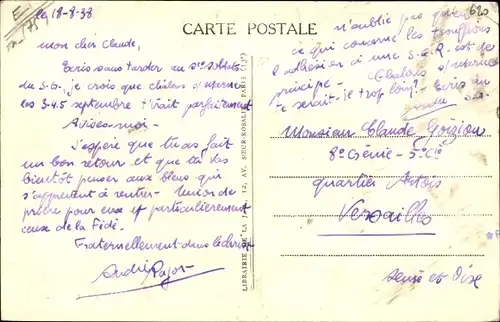 le 18-8-38
mon cher Claude,
Ecris sans tarder au
du S.G. je crois que châlons s/marne
les 3.4.5 septembre t'irait parfaitement
Avises-moi -
J'espère que tu as fait
un bon retour et que tu vas
bientôt penser aux bleus qui
s'apprêtent à rentrer - Union de
prière pour eux et particulièrement
ceux de la Fédé.
Fraternellement dans le christ
André Pajot
CARTE POSTALE
LIBRAIRIE DE LA 12, AV. SŒUR-ROSALIE, PARIS (13e)
620
n'oublie pas qu'en
ce qui concerne les
l'adhésion à une S.E.R. est de
principe -
Chalons s/marne
te serait-il trop loin? - Ecris
Monsieur Claude Goizion
8e Génie - 5e Cie
quartier Artois
Versailles
Seine et Oise